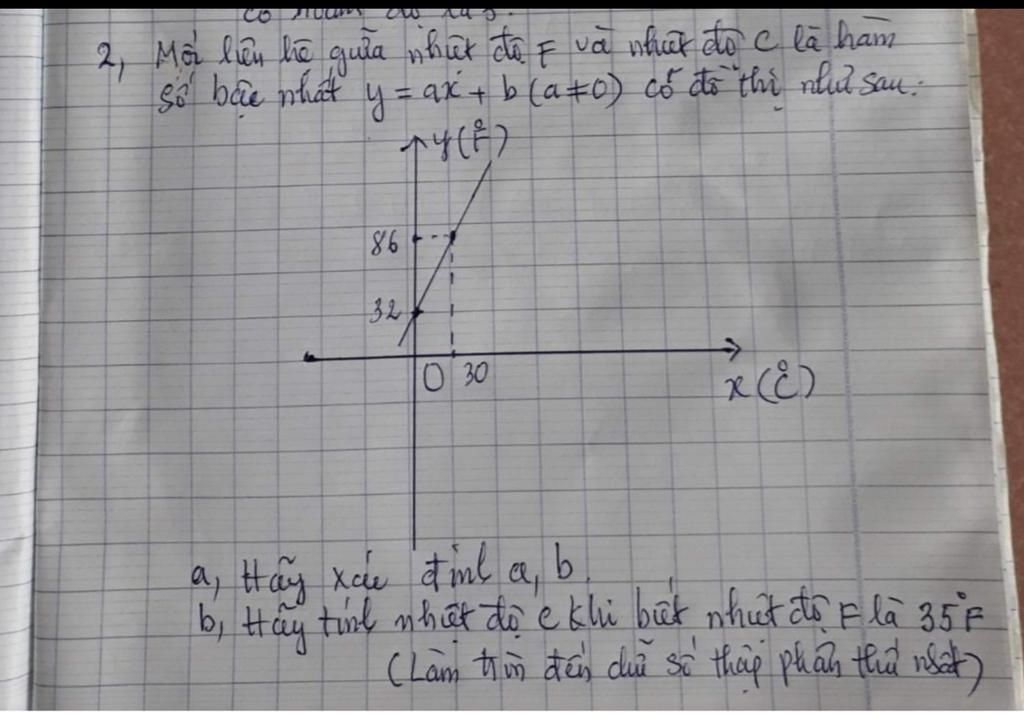 có hoành độ là 3.
2, Mối liên hệ giữa nhiệt độ F và nhiệt độ C là hàm
số bậc nhất y = ax + b (a ≠ 0) có đồ thị như sau:
y (°F)
86
32
O 30
x (°C)
a, Hãy xác định a, b
b, Hãy tính nhiệt độ C khi biết nhiệt độ F là 35°F
(Làm tròn đến chữ số thập phân thứ nhất)